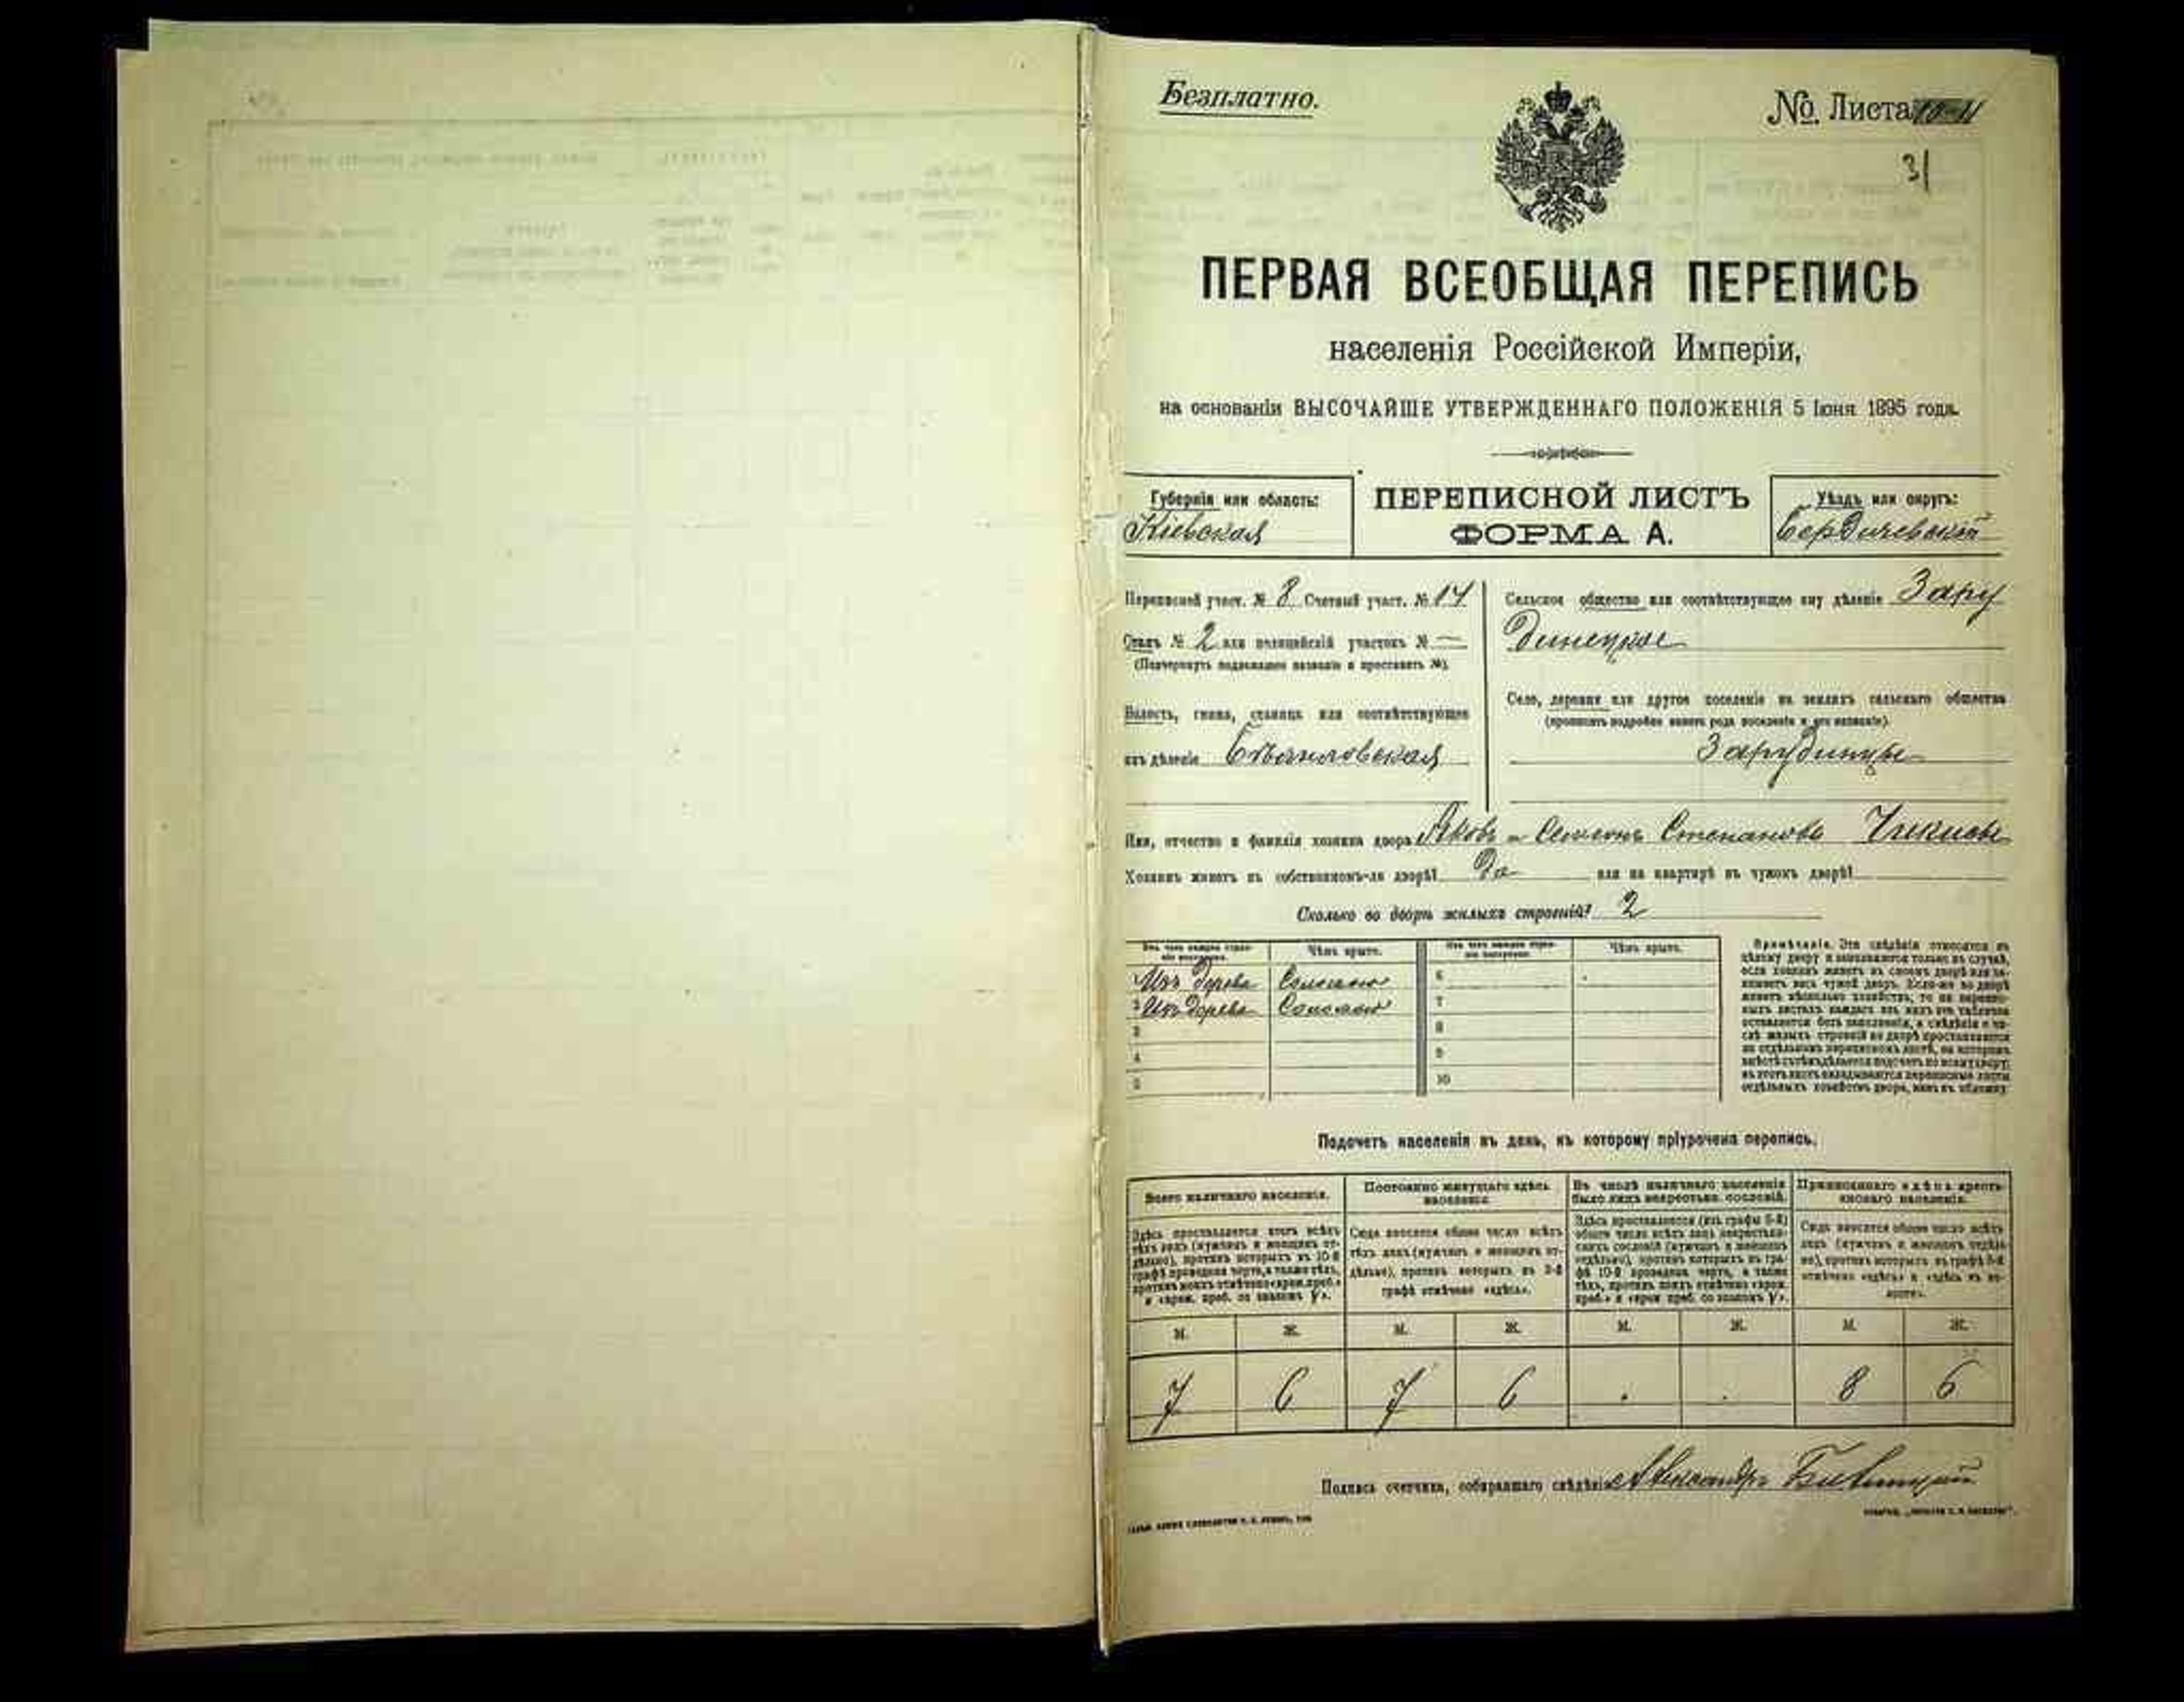 Безплатно.
№ Листа 10-11
31
ПЕРВАЯ ВСЕОБЩАЯ ПЕРЕПИСЬ
населенія Россійской Имперіи,
на основаніи ВЫСОЧАЙШЕ УТВЕРЖДЕННАГО ПОЛОЖЕНІЯ 5 Іюня 1895 года.
Губернія или область:
Кіевская
ПЕРЕПИСНОЙ ЛИСТЪ
ФОРМА А.
Уѣздъ или округъ:
Бердичевскій
Переписной участ. № 8 Счетный участ. № 14
Станъ № 2 или полицейскій участокъ № —
(Подчеркнуть подлежащее названіе и проставить №).
Волость, гмина, станица или соотвѣтствующее
имъ дѣленіе
Сельское общество или соотвѣтствующее ему дѣленіе Зару
динецкое
Село, деревня или другое поселеніе на земляхъ сельскаго общества
(прописать подробно какого рода поселеніе и его названіе).
Зарудинцы
Имя, отчество и фамилія хозяина двора Яковъ Семенъ Степановы
Хозяинъ живетъ въ собственномъ-ли дворѣ? Да или на квартирѣ въ чужомъ дворѣ?
Сколько во дворѣ жилыхъ строеній? 2
Изъ чего каждое строеніе построено.
Чѣмъ крыто.
Изъ чего каждое строеніе построено.
Чѣмъ крыто.
1 Изъ дерева Соломою
2 Изъ дерева Соломою
3
4
5
6
7
8
9
10
Примѣчаніе. Эти свѣдѣнія относятся къ
цѣлому двору и заполняются только въ случаѣ,
если хозяинъ живетъ въ своемъ дворѣ или за-
нимаетъ весь чужой дворъ. Если-же во дворѣ
живетъ нѣсколько хозяйствъ, то на перепис-
ныхъ листахъ каждаго изъ нихъ эта табличка
оставляется безъ заполненія, а свѣдѣнія о чи-
слѣ жилыхъ строеній во дворѣ проставляются
на отдѣльномъ переписномъ листѣ, на которомъ
вмѣстѣ съ тѣмъ дѣлается подсчетъ по всему двору;
въ этотъ листъ вкладываются переписные листы
отдѣльныхъ хозяйствъ двора, какъ въ обложку.
Подсчетъ населенія въ день, къ которому пріурочена перепись.
Всего наличнаго населенія.
Постоянно живущаго здѣсь
населенія.
Въ числѣ наличнаго населенія
было лицъ некрестьян. сословій.
Приписаннаго здѣсь кресть-
янскаго населенія.
Здѣсь проставляется итогъ всѣхъ
тѣхъ лицъ (мужчинъ и женщинъ от-
дѣльно), противъ которыхъ въ 10-й
графѣ проведена черта, а также тѣхъ,
противъ коихъ отмѣчено «врем. преб.»
и «врем. преб. со знакомъ V».
Сюда вносится общее число всѣхъ
тѣхъ лицъ (мужчинъ и женщинъ от-
дѣльно), противъ которыхъ въ 9-й
графѣ отмѣчено «здѣсь».
Здѣсь проставляется (изъ графы 5-й)
общее число всѣхъ лицъ некрестьян-
скихъ сословій (мужчинъ и женщинъ
отдѣльно), противъ которыхъ въ гра-
фѣ 10-й проведена черта, а также
тѣхъ, противъ коихъ отмѣчено «врем.
преб.» и «врем преб. со знакомъ V».
Сюда вносится общее число всѣхъ
лицъ (мужчинъ и женщинъ отдѣль-
но), противъ которыхъ въ графѣ 8-й
отмѣчено «здѣсь» и «здѣсь въ во-
лости».
М. Ж. М. Ж. М. Ж. М. Ж.
7 6 7 6 . . 8 6
Подпись счетчика, собиравшаго свѣдѣнія Александръ